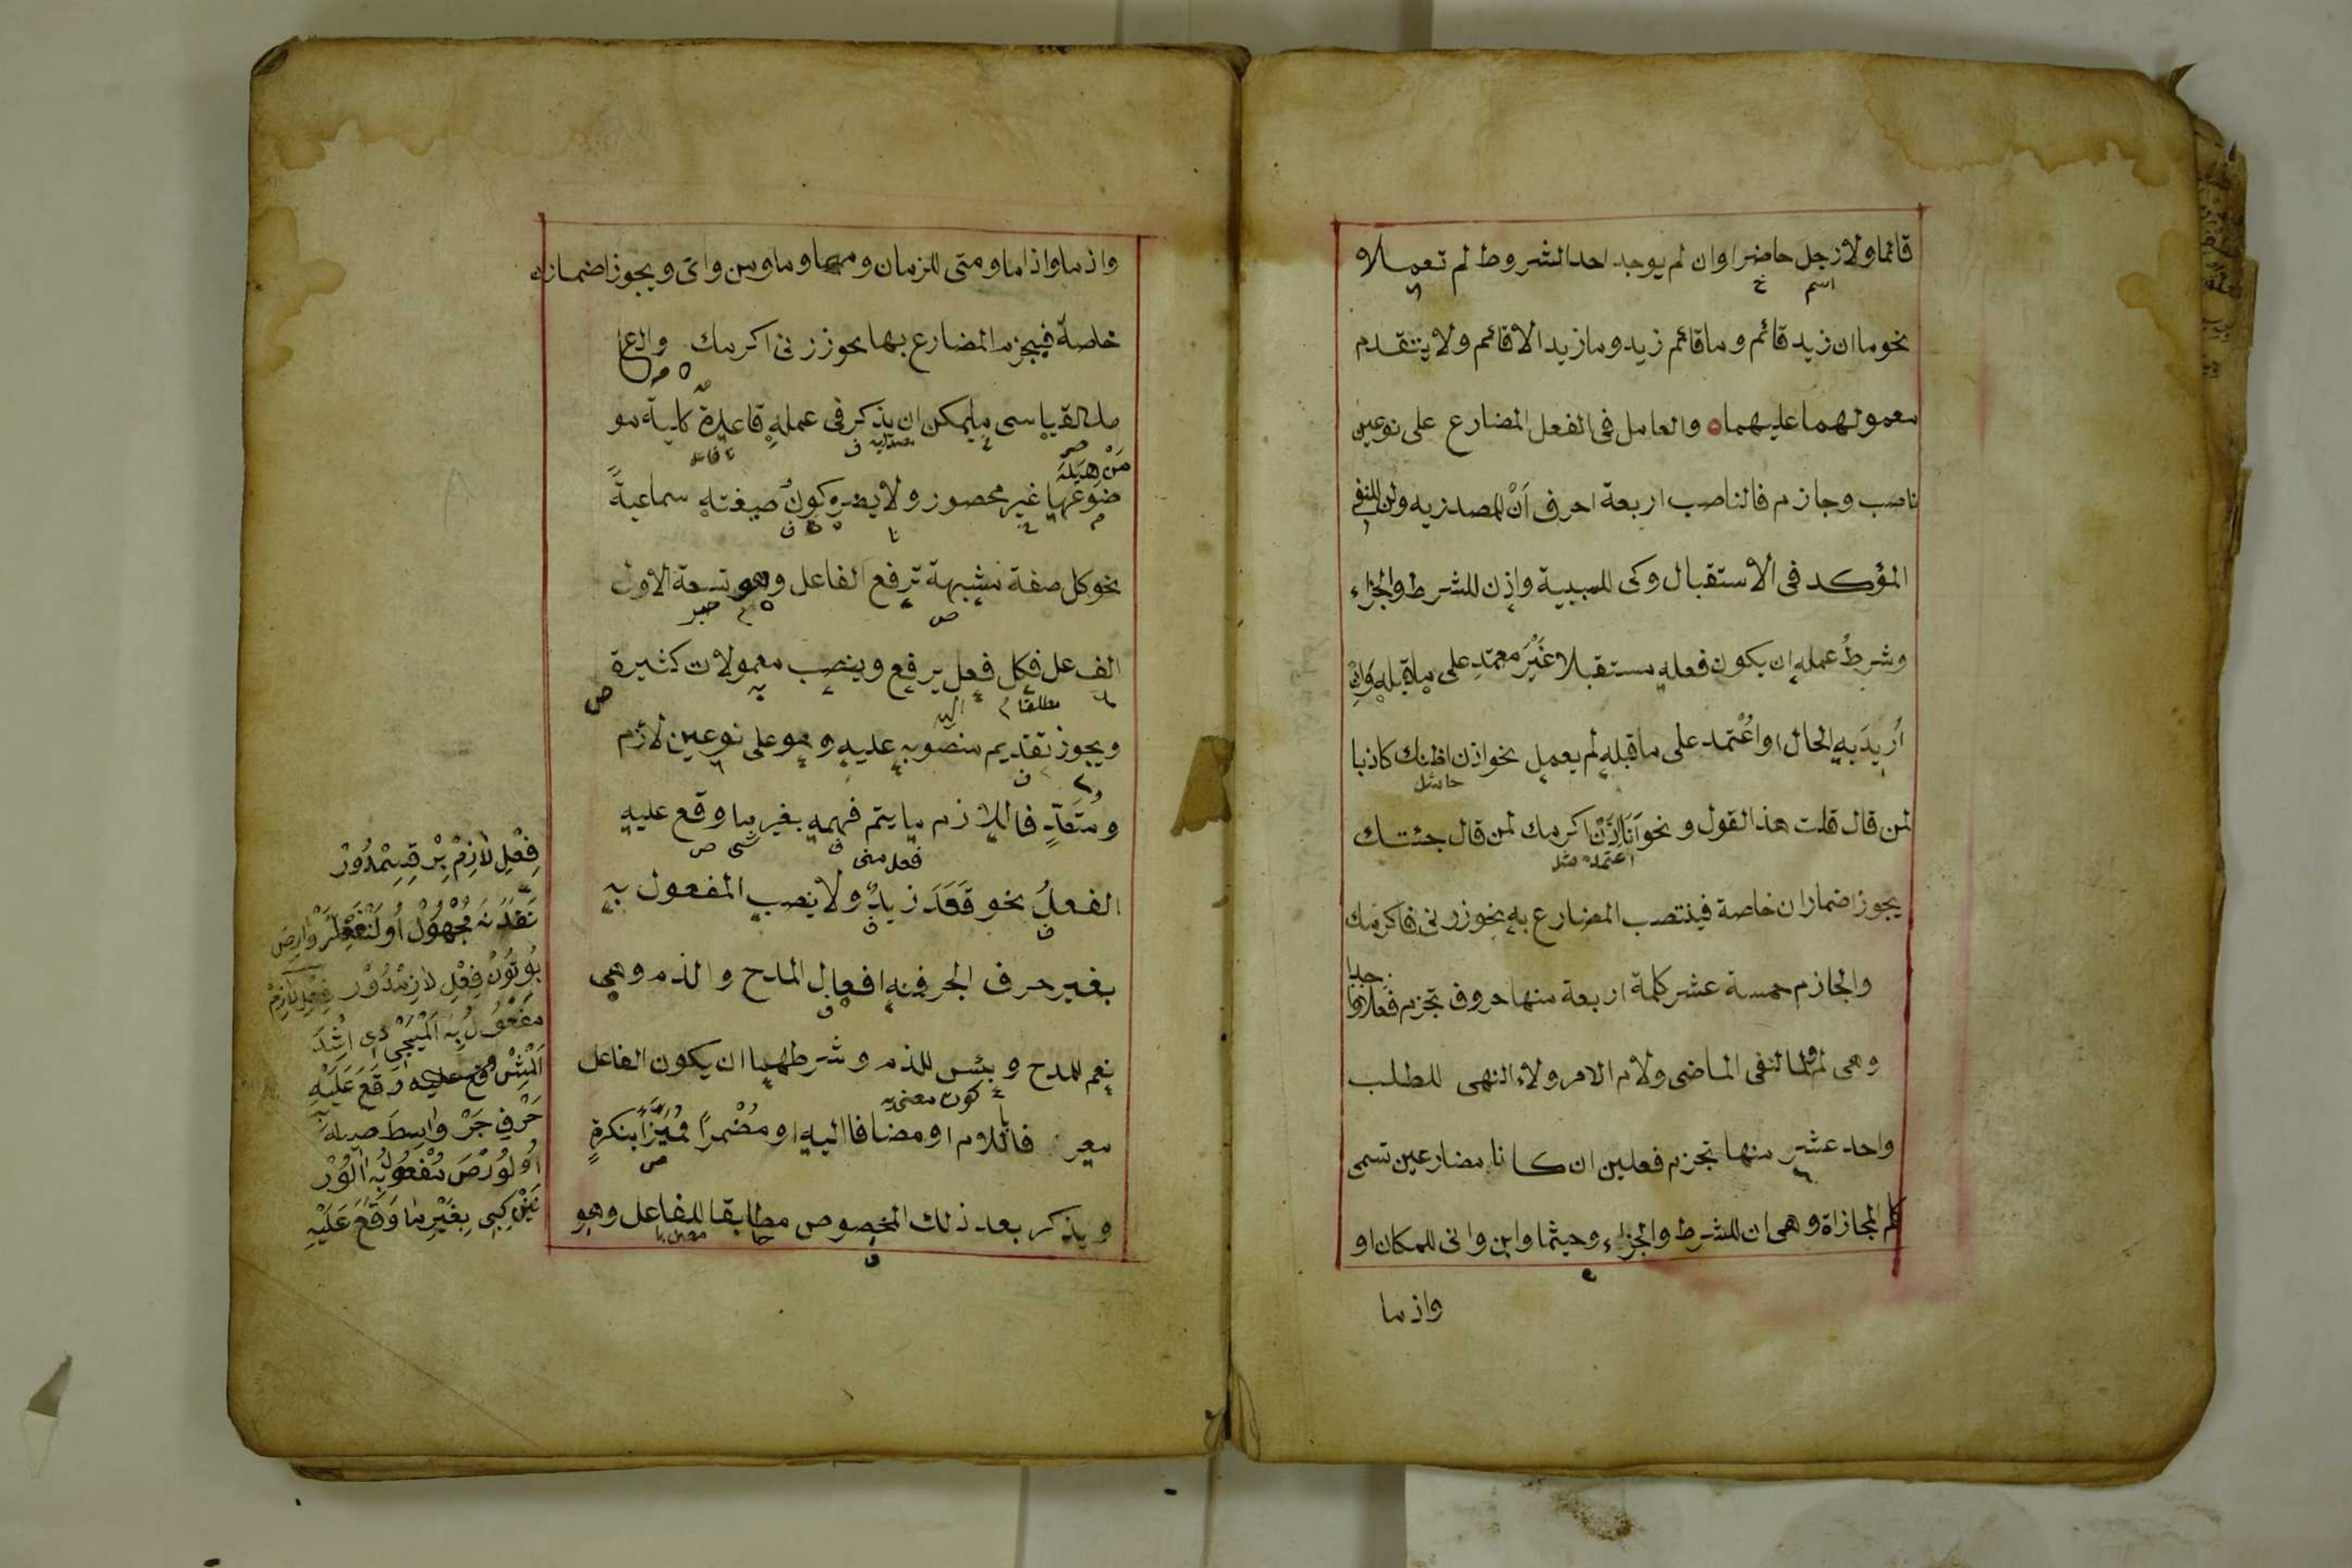 قائما ولا رجل حاضرا وان لم يوجد احد الشروط لم تعملا
نحو ما ان زيد قائم وما قائم زيد وما زيد الا قائم ولا يتقدم
معمولهما عليهما والعامل فى الفعل المضارع على نوعين
ناصب وجازم فالناصب اربعة احرف اَنْ للمصدريه ولن للنفى
المؤكد فى الاستقبال وكى للسببية واذن للشرط والجزاء
وشرطُ عمله ان يكون فعله مستقبلا غَيْرَ معتمدٍ على ما قبله وَاِنْ
اُريدَ بِهِ الحال او اعْتُمد على ما قبله لم يعمل نحو اذن اظنك كاذبا
لمن قال قلت هذا القول ونحو اَنَا اِذَنْ اكرمك لمن قال جئتك
يجوز اضمار ان خاصة فينتصب المضارع به نحو زرنى فاكرمك
والجازم خمسة عشر كلمة اربعة منها حروف تجزم فعلا واحدا
وهى لم ولما لنفى الماضى ولام الامر ولاء النهى للطلب
واحد عشر منها تجزم فعلين ان كانا مضارعين تسمى
كلم المجازاة وهى ان للشرط والجزاء وحيثما واين وانى للمكان او
واذ ما
واذ ما واذا ما ومتى للزمان ومهما وما ومن واى ويجوز اضمار ان
خاصة فيجزم المضارع بها نحو زرنى اكرمك والعا
مل القياسى ما يمكن ان يذكر فى عمله قاعدة كلية مو
ضوعها غير محصور ولا يضره كون صيغته سماعية
نحو كل صفة مشبهة ترفع الفاعل وهو تسعة الاول
الفعل فكل فعل يرفع وينصب معمولات كثيرة
ويجوز تقديم منصوبه عليه وهو على نوعين لازم
ومُتَعَدٍّ فاللازم ما يتم فهمه بغير ما وقع عليه
الفعلُ نحو قَعَدَ زيدٌ ولا ينصب المفعول به
بغير حرف الجر فمنه افعال المدح والذم وهى
نعم للمدح وبئس للذم وشرطهما ان يكون الفاعل
معرفا باللام او مضافا اليه او مُضْمرًا مُمَيَّزًا بنكرةٍ
ويذكر بعد ذلك المخصوص مطابقا للفاعل وهو
فِعْلِ لازِمْ
مَفْعُولُ بِهْ
وَقَعَ عَلَيْهِ
حَرْفِ جَرْ
بِغَيْرِ مَا وَقَعَ عَلَيْهِ